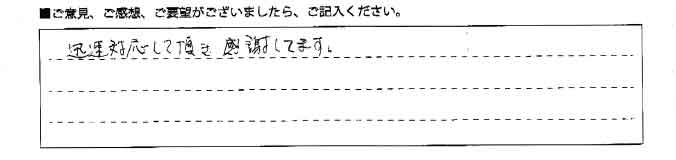 ■ご意見、ご感想、ご要望がございましたら、ご記入ください。
迅速対応して頂き感謝してます。